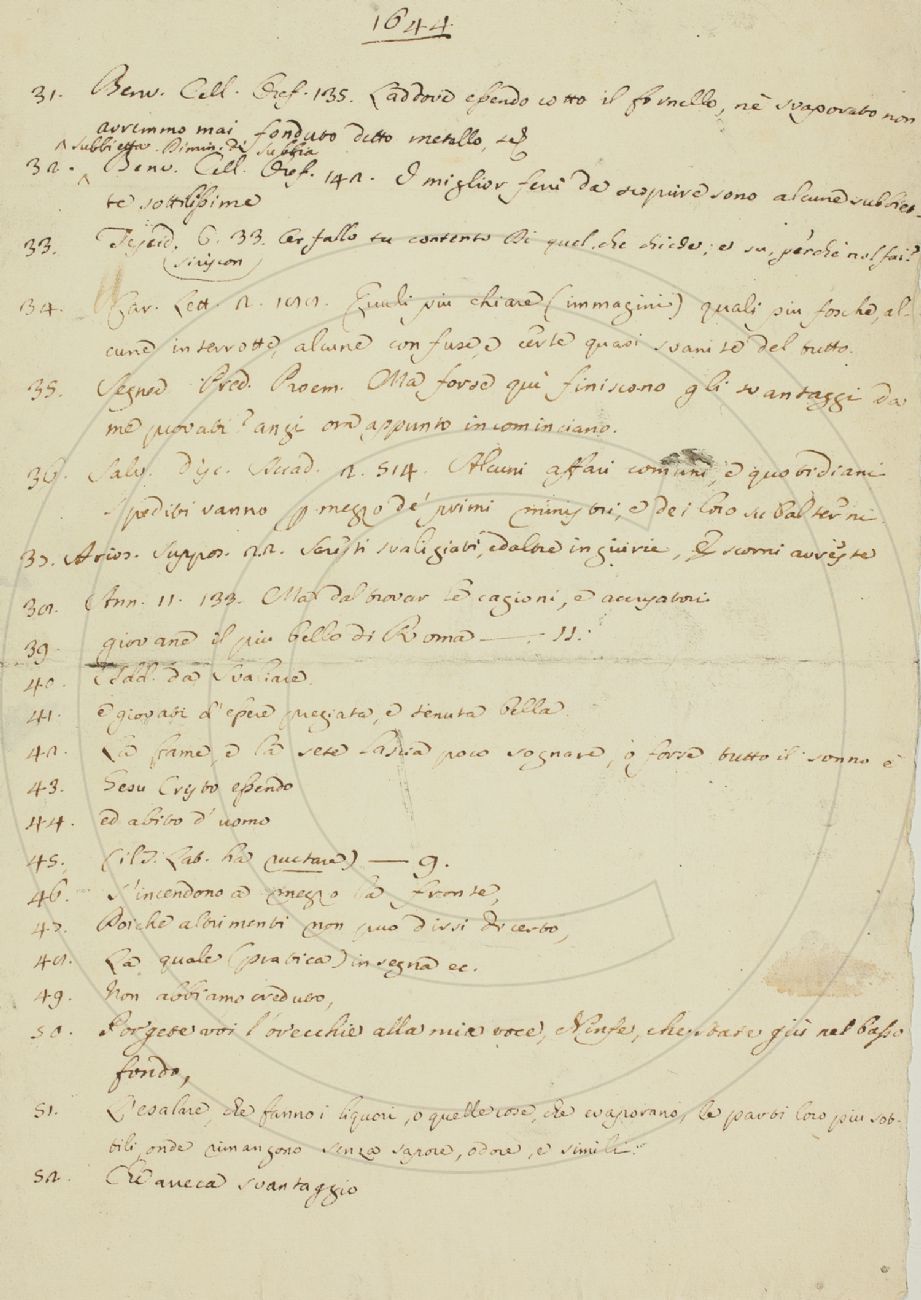 1644
31. Benv. Cell. Oref. 135. Laddove essendo cotto il fornello, nè svaporato non
avremmo mai fonduto detto metallo,
subbietta. Dimin. di subbia
32. Benv. Cell. Oref. 142. I miglior ferri da scoprire sono alcune subbiet-
te sottilissime
33. 6. 33. Per fallo tu contento Di quel, che chiede; e su, perchè nol fai?
34. Gar. Lett. 2. Quali più chiare (immagini) quali più fosche, al-
cune interrotte, alcune confuse, e certe quasi svanite del tutto.
35. Segner. Pred. Proem. Ma forse quì finiscono gli svantaggi da
me provati? anzi ora appunto incominciano.
36. Salv. Disc. Accad. 2. 514. Alcuni affari comuni, e quotidiani
spediti vanno p mezzo de' primi ministri, e dei loro subalterni.
37. Arios. Suppos. 2.2. Seresti svaligiati, ed altre ingiurie, E scorni avreste
38. Ann. 11. 133. Ma dal trovar le cagioni, e accusatori
39. giovane il più bello di Roma — 11.
40. Add. da Svaliare.
41. e giovati d'essere pregiata, e tenuta bella.
42. La fame, e la sete lascia poco sognare, o forse tutto il sonno è
43. Gesu Cristo essendo
44. ed abito d'uomo
45. (il T. Lab. ha ruttare) — 9.
46. S'incendono a mezzo la fronte,
47. Poichè altrimenti non può dirsi di certo,
48. La quale (pratica) insegna ec.
49. Non abbiamo creduto,
50. Porgete voi l'orecchie alla mia voce, Ninfe, che state giù nel basso
fondo,
51. L'esalare, che fanno i liquori, o quelle cose, che evaporano, le parti loro più sot-
tili, onde rimangono senza sapore, odore, e simili.
52. Che areca svantaggio